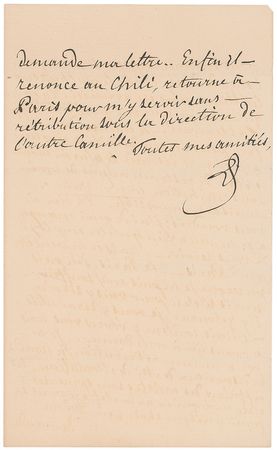 demande ma lettre.. Enfin il
renonce au Chili, retourne à
Paris pour m'y servir sans
rétribution sous la direction de
l'autre Camille.
Toutes mes amitiés,